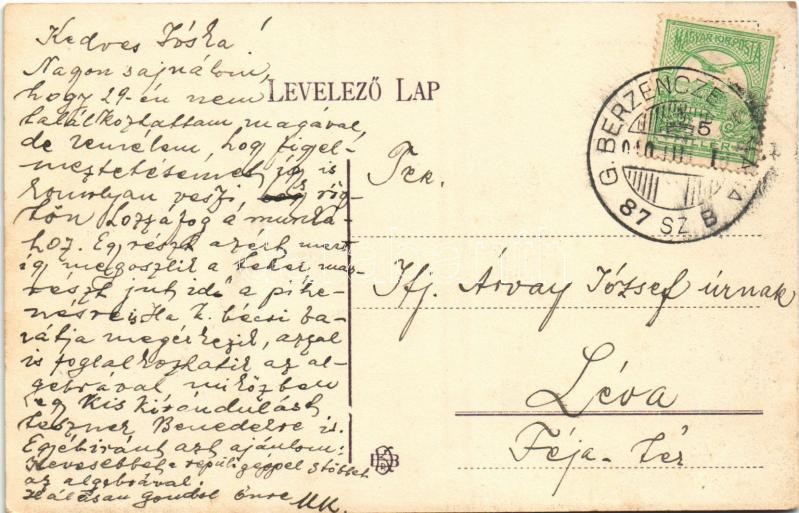 Kedves Jóska!
Nagyon sajnálom,
hogy 29-én nem
találkozhattam magával,
de remélem, hogy figel-
meztetésemet így is
komolyan veszi, rög-
tön hozzáfog a munká-
hoz. Egyrészt azért mert
így megoszlik a teher más-
részt jut idő a pihe-
nésre is. Ha k. bécsi ba-
rátja megérkezik, azzal
is foglalkozhatik az al-
gebrával miközben
egy kis kirándulást
tesznek Benedekre is.
Egyébiránt azt ajánlom:
Kevesebbet a repülőgéppel többet
az algebrával.
Hálásan gondol Önre
MK.
LEVELEZŐ LAP
MAGYAR KIR. POSTA
G. BERZENCZE
87 SZ B
Ifj. Árvay József úrnak
Léva
Féja-tér